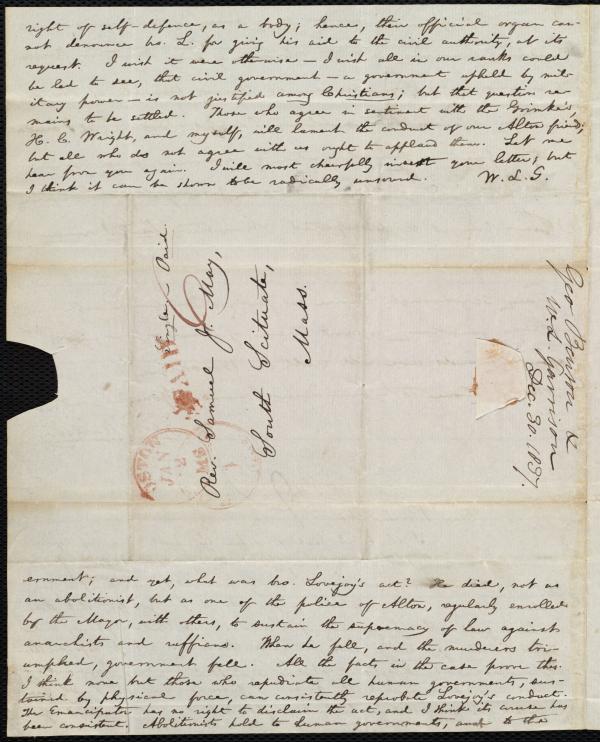 right of self-defence, as a body; hence, their official organ can-
not denounce bro. L. for giving his aid to the civil authority, at its
request. I wish it were otherwise—I wish all in our ranks could
be led to see, that civil government—a government upheld by mil-
itary power—is not justified among Christians; but that question re-
mains to be settled. Those who agree in sentiment with the Grimkes,
H. C. Wright, and myself, will lament the conduct of our Alton friend;
but all who do not agree with us ought to applaud them. Let me
hear from you again. I will most cheerfully insert your letter; but
I think it can be shown to be radically unsound. W. L. G.
Single—Paid.
PAID
6
Rev. Samuel J. May,
South Scituate,
Mass.
BOSTON
JAN
2
MS
Geo Benson &
W. L. Garrison
Dec. 30. 1837.
ernment; and yet, what was bro. Lovejoy's act? He died, not as
an abolitionist, but as one of the police of Alton, regularly enrolled
by the Mayor, with others, to sustain the supremacy of law against
anarchists and ruffians. When he fell, and the murderers tri-
umphed, government fell. All the facts in the case prove this.
I think none but those who repudiate all human governments, sus-
tained by physical force, can consistently reprobate Lovejoy's conduct.
The Emancipator has no right to disclaim the act, and I think its course has
been consistent. Abolitionists hold to human governments, and to the